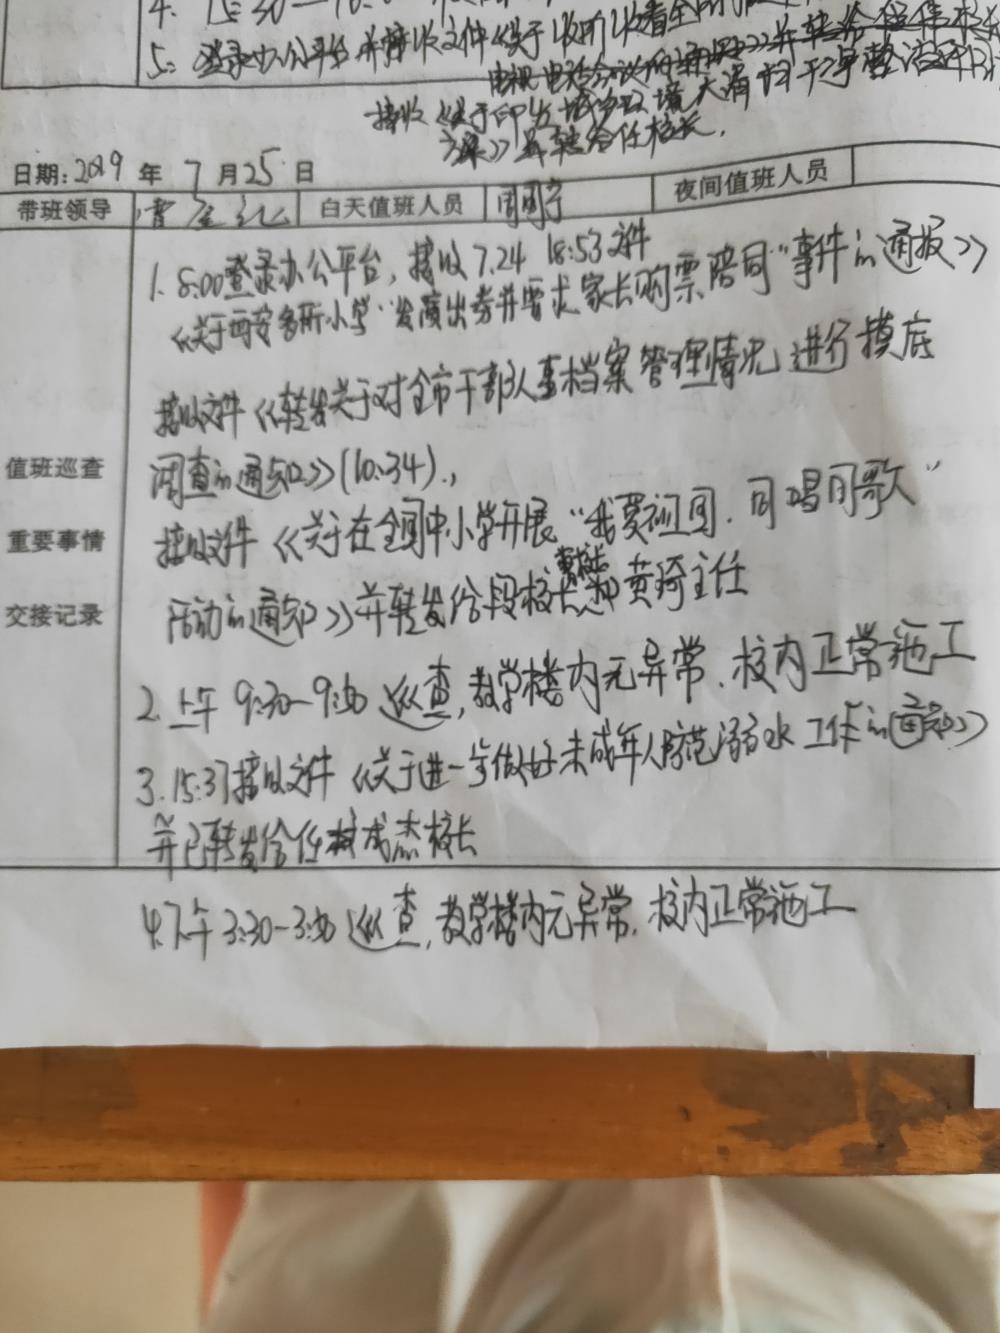 4. 15:30—
5. 登录办公平台并接收文件《关于收听收看全
电视电话会议的通知》并转给任伟校
接收《关于印发 境大清扫干净整洁
方案》并转给任校长.
日期: 2019 年 7 月 25 日
带班领导 白天值班人员 周围宁 夜间值班人员
1. 8:00登录办公平台, 接收7.24 18:53文件
《关于西安多所小学“发演出券并要求家长购票陪同”事件的通报》
接收文件《转发关于对全市干部人事档案管理情况进行摸底
值班巡查 调查的通知》(10:34).,
重要事情 接收文件《关于在全国中小学开展“我爱祖国.同唱国歌”
交接记录 活动的通知》并转发给段校长 和黄琦主任
2. 上午 9:30—9:50 巡查, 教学楼内无异常, 校内正常施工
3. 15:37接收文件《关于进一步做好未成年人防范溺水工作的通知》
并已转发给任 成杰校长
4.下午 3:30—3:50 巡查, 教学楼内无异常, 校内正常施工